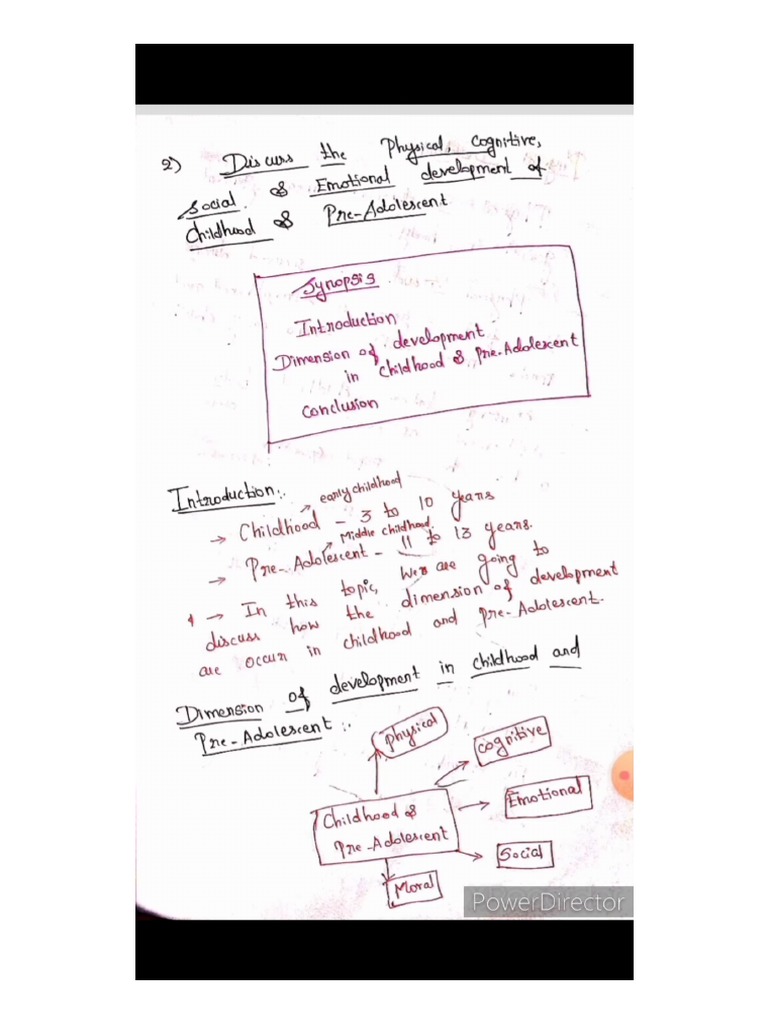 2) Discuss the Physical, Cognitive,
Social & Emotional development of
Childhood & Pre-Adolescent
Synopsis
Introduction
Dimension of development
in childhood & Pre-Adolescent
Conclusion
Introduction:.
early childhood
→ Childhood - 3 to 10 years
Middle childhood.
→ Pre-Adolescent - 11 to 13 years.
→ In this topic, We are going to
discuss how the dimension of development
are occur in childhood and Pre-Adolescent.
Dimension of development in childhood and
Pre-Adolescent :.
Physical
Cognitive
Childhood &
Pre-Adolescent
Emotional
Social
Moral
PowerDirector